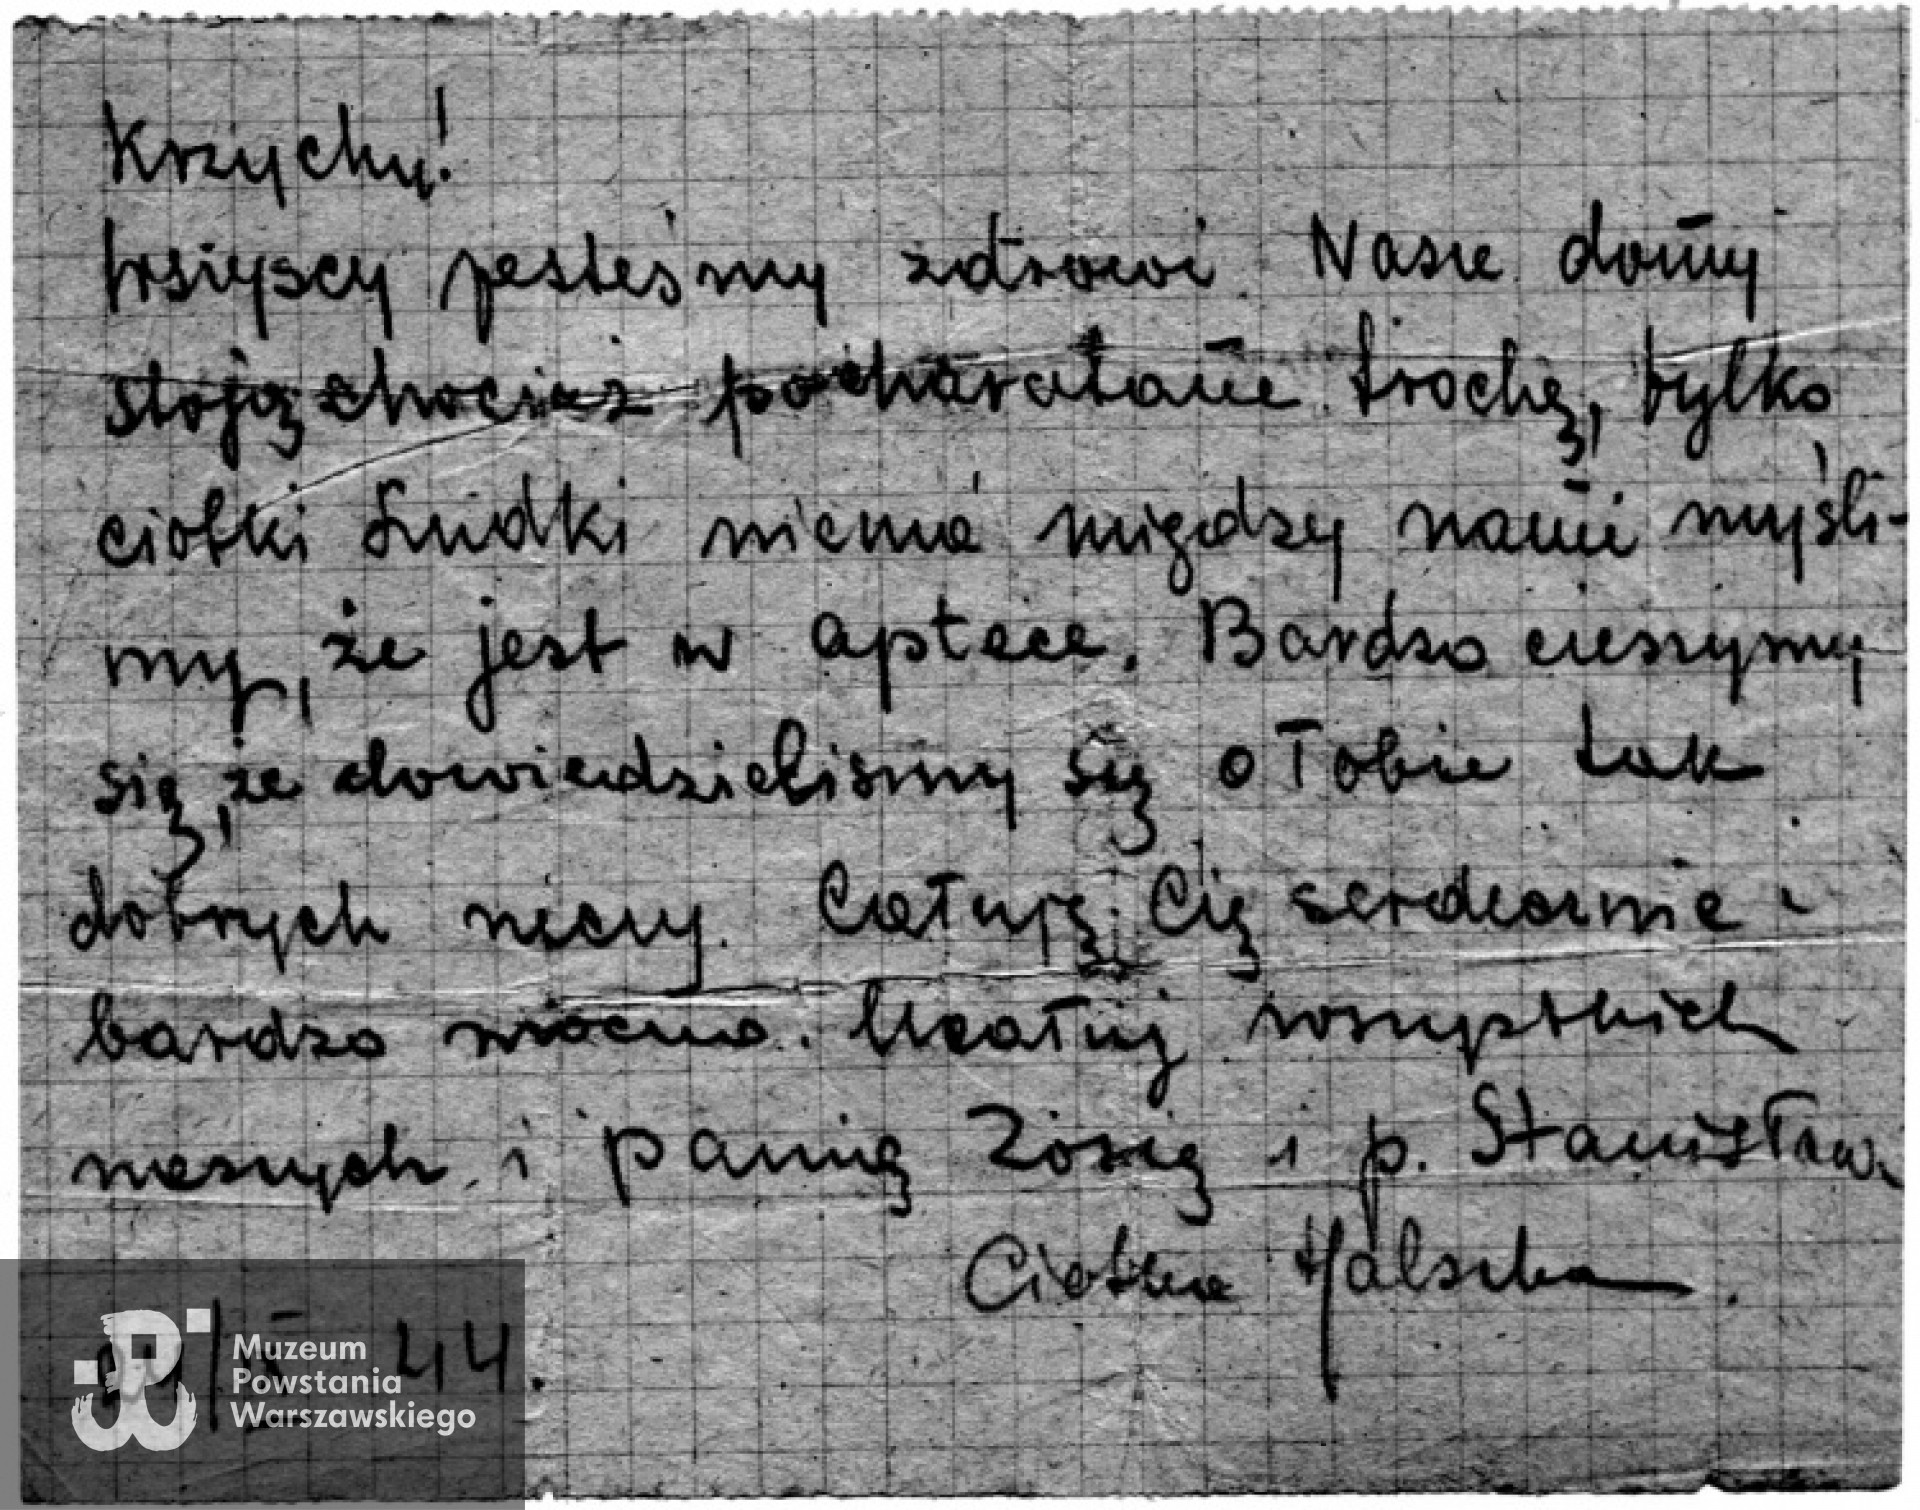 Krzychu!
Wszyscy jesteśmy zdrowi. Nasze domy
stoją chociaż pocharatane trochę, tylko
ciotki Ludki niema między nami myśli-
my, że jest w aptece. Bardzo cieszymy
się, że dowiedzieliśmy się o Tobie tak
dobrych rzeczy. Całuję Cię serdecznie i
bardzo mocno. Ucałuj wszystkich
naszych i panią Zosię i p. Stanisława
Ciotka Halszka.
44.
Muzeum
Powstania
Warszawskiego